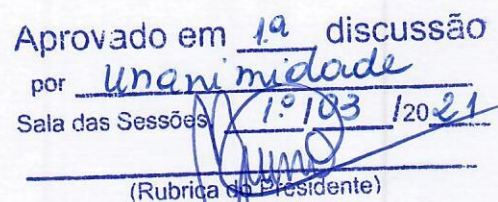 Aprovado em 1ª discussão
por unanimidade
Sala das Sessões 1º / 03 / 20 21
(Rubrica do Presidente)